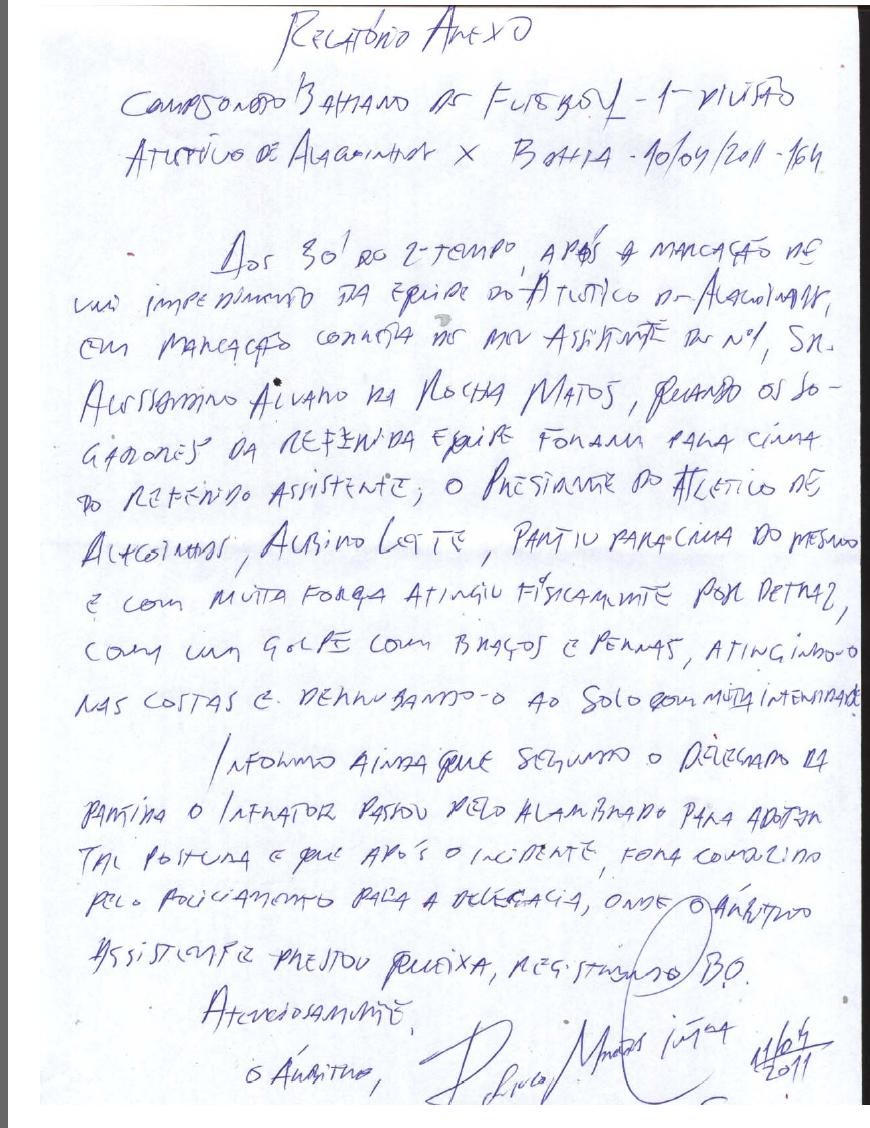 RELATÓRIO ANEXO
CAMPEONATO BAHIANO DE FUTEBOL - 1ª DIVISÃO
ATLÉTICO DE ALAGOINHAS X BAHIA - 10/04/2011 - 16H
AOS 30' DO 2º TEMPO, APÓS A MARCAÇÃO DE
UM IMPEDIMENTO DA EQUIPE DO ATLÉTICO DE ALAGOINHAS,
EM MARCAÇÃO CORRETA DO MEU ASSISTENTE DE Nº 1, SR.
ALESSANDRO ÁLVARO DA ROCHA MATOS, QUANDO OS JO-
GADORES DA REFERIDA EQUIPE FORAM PARA CIMA
DO REFERIDO ASSISTENTE; O PRESIDENTE DO ATLETICO DE
ALAGOINHAS, ALBINO LEITE, PARTIU PARA CIMA DO MESMO
E COM MUITA FORÇA ATINGIU FÍSICAMENTE POR DETRAZ,
COM UM GOLPE COM BRAÇOS E PERNAS, ATINGINDO-O
NAS COSTAS E DERRUBANDO-O AO SOLO COM MUITA INTENSIDADE
INFORMO AINDA QUE SEGUNDO O DELEGADO DA
PARTIDA O INFRATOR PASSOU PELO ALAMBRADO PARA ADOTAR
TAL POSTURA E QUE APÓS O INCIDENTE, FORA CONDUZIDO
PELO POLICIAMENTO PARA A DELEGACIA, ONDE O ÁRBITRO
ASSISTENTE PRESTOU QUEIXA, REGISTRANDO B.O.
ATENCIOSAMENTE,
O ÁRBITRO,
11/04
2011